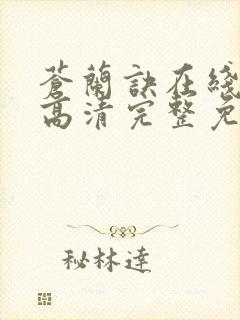 蒼蘭訣在綫
高清完整免
秘林達